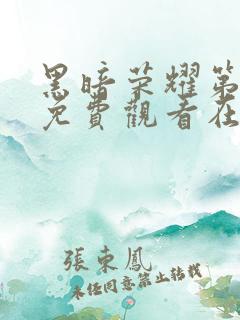 黑暗荣耀第
免費觀看在
張東鳳
未经同意禁止转载